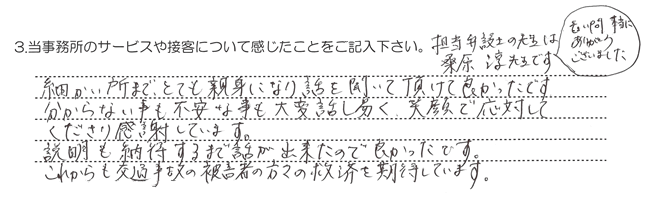 3.当事務所のサービスや接客について感じたことをご記入下さい。
担当弁護士の先生は
桑原 淳先生です
長い間 本当に
ありがとう
ございました
細かい所まで、とても親身になり話を聞いて頂けて良かったです
分からない事も不安な事も大変話し易く、笑顔で応対して
くださり感謝しています。
説明も納得するまで話が出来たので良かったです。
これからも交通事故の被害者の方々の救済を期待しています。